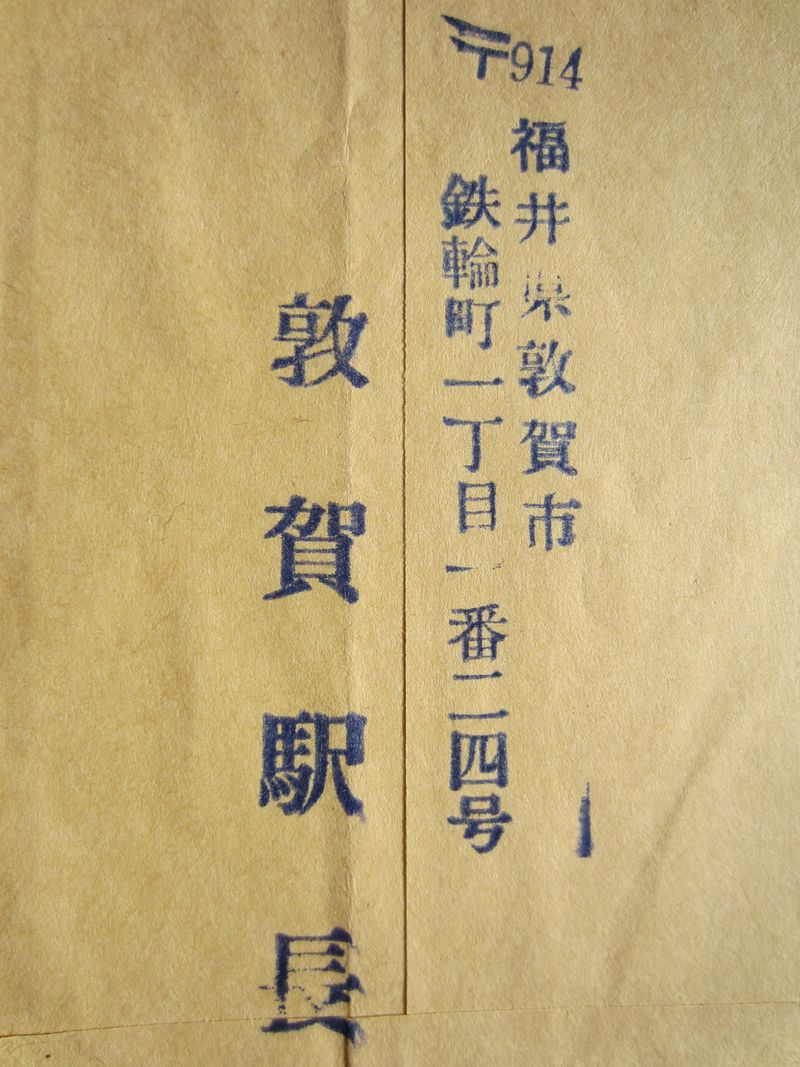 〒914
福井県敦賀市
鉄輪町一丁目一番二四号
敦賀駅長